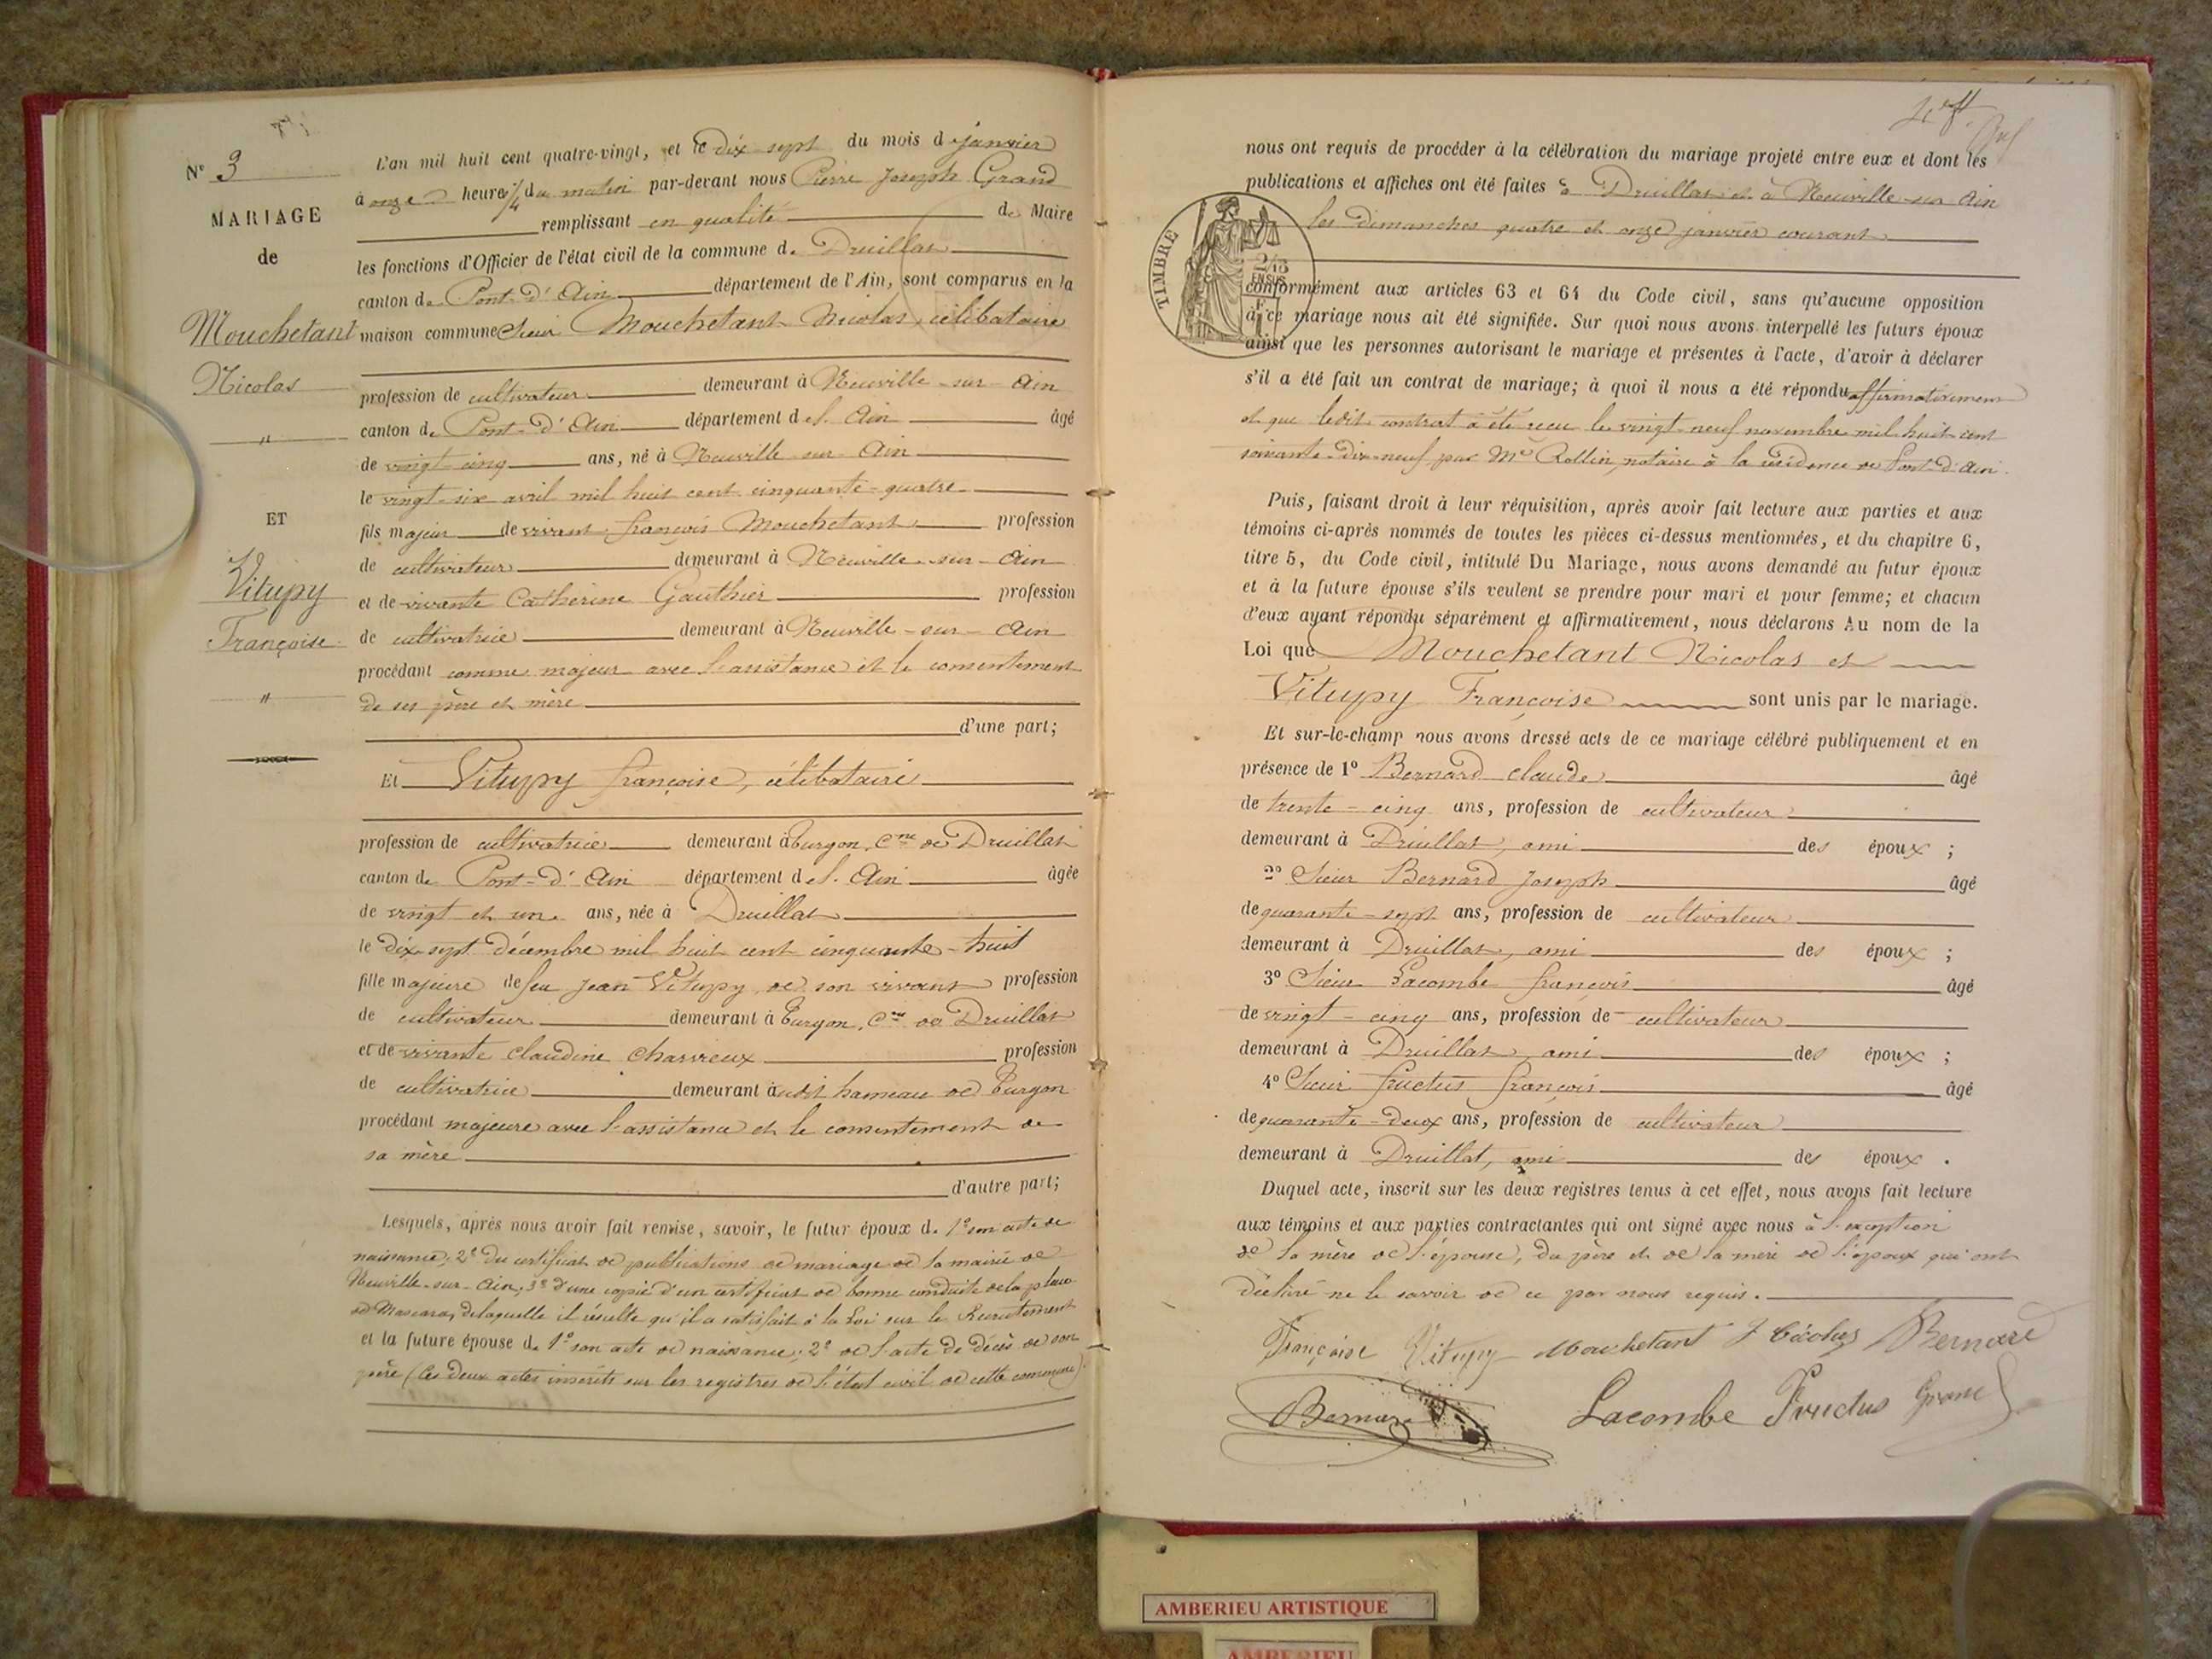 N° 3
MARIAGE
de
Mouchetant
Nicolas
"
ET
Vitupy
Françoise
"
L'an mil huit cent quatre-vingt, et le dix sept du mois de janvier
à onze heures 1/4 du matin par-devant nous Pierre Joseph Grand
remplissant en qualité de Maire
les fonctions d'Officier de l'état civil de la commune de Druillat
canton de Pont-d'Ain département de l'Ain, sont comparus en la
maison commune Sieur Mouchetant Nicolas, célibataire
profession de cultivateur demeurant à Neuville-sur-Ain
canton de Pont-d'Ain département de l'Ain âgé
de vingt-cinq ans, né à Neuville-sur-Ain
le vingt-six avril mil huit cent cinquante-quatre
fils majeur de vivant françois Mouchetant profession
de cultivateur demeurant à Neuville-sur-Ain
et de vivante Catherine Gauthier profession
de cultivatrice demeurant à Neuville-sur-Ain
procédant comme majeur avec l'assistance et le consentement
de ses père et mère
d'une part;
Et Vitupy françoise, célibataire
profession de cultivatrice demeurant à Turgon, Cne de Druillat
canton de Pont-d'Ain département de l'Ain âgée
de vingt et un ans, née à Druillat
le dix-sept décembre mil huit cent cinquante-huit
fille majeure de feu Jean Vitupy de son vivant profession
de cultivateur demeurant à Turgon, Cne de Druillat
et de vivante claudine Charvieux profession
de cultivatrice demeurant à udit hameau de Turgon
procédant majeure avec l'assistance et le consentement de
sa mère
d'autre part;
Lesquels, après nous avoir fait remise, savoir, le futur époux de 1° son acte de
naissance; 2° du certificat de publications de mariage de la mairie de
Neuville-sur-Ain; 3° d'une copie d'un certificat de bonne conduite de la place
de Mascara, de laquelle il résulte qu'il a satisfait à la Loi sur le Recrutement
et la future épouse de 1° son acte de naissance; 2° de l'acte de décès de son
père (Ces deux actes inscrits sur les registres de l'état civil de cette commune).
nous ont requis de procéder à la célébration du mariage projeté entre eux et dont les
publications et affiches ont été faites à Druillat et à Neuville-sur-Ain
les dimanches quatre et onze janvier courant
TIMBRE
conformément aux articles 63 et 64 du Code civil, sans qu'aucune opposition
à ce mariage nous ait été signifiée. Sur quoi nous avons interpellé les futurs époux
ainsi que les personnes autorisant le mariage et présentes à l'acte, d'avoir à déclarer
s'il a été fait un contrat de mariage; à quoi il nous a été répondu affirmativement
et que ledit contrat a été reçu le vingt-neuf novembre mil huit cent
soixante-dix-neuf par Me Rollin, notaire à la résidence de Pont-d'Ain.
Puis, faisant droit à leur réquisition, après avoir fait lecture aux parties et aux
témoins ci-après nommés de toutes les pièces ci-dessus mentionnées, et du chapitre 6,
titre 5, du Code civil, intitulé Du Mariage, nous avons demandé au futur époux
et à la future épouse s'ils veulent se prendre pour mari et pour femme; et chacun
d'eux ayant répondu séparément et affirmativement, nous déclarons Au nom de la
Loi que Mouchetant Nicolas et
Vitupy Françoise sont unis par le mariage.
Et sur-le-champ nous avons dressé acte de ce mariage célébré publiquement et en
présence de 1° Bernard claude âgé
de trente-cinq ans, profession de cultivateur
demeurant à Druillat, ami des époux ;
2° Sieur Bernard Joseph âgé
de quarante-sept ans, profession de cultivateur
demeurant à Druillat, ami des époux ;
3° Sieur Lacombe françois âgé
de vingt-cinq ans, profession de cultivateur
demeurant à Druillat, ami des époux ;
4° Sieur fructus françois âgé
de quarante-deux ans, profession de cultivateur
demeurant à Druillat, ami des époux .
Duquel acte, inscrit sur les deux registres tenus à cet effet, nous avons fait lecture
aux témoins et aux parties contractantes qui ont signé avec nous à l'exception
de la mère de l'épouse, du père et de la mère de l'époux qui ont
déclaré ne le savoir de ce par nous requis.
Françoise Vitupy Mouchetant Nicolas Bernard
Bernard Lacombe Fructus Grand
AMBERIEU ARTISTIQUE
AMBERIEU